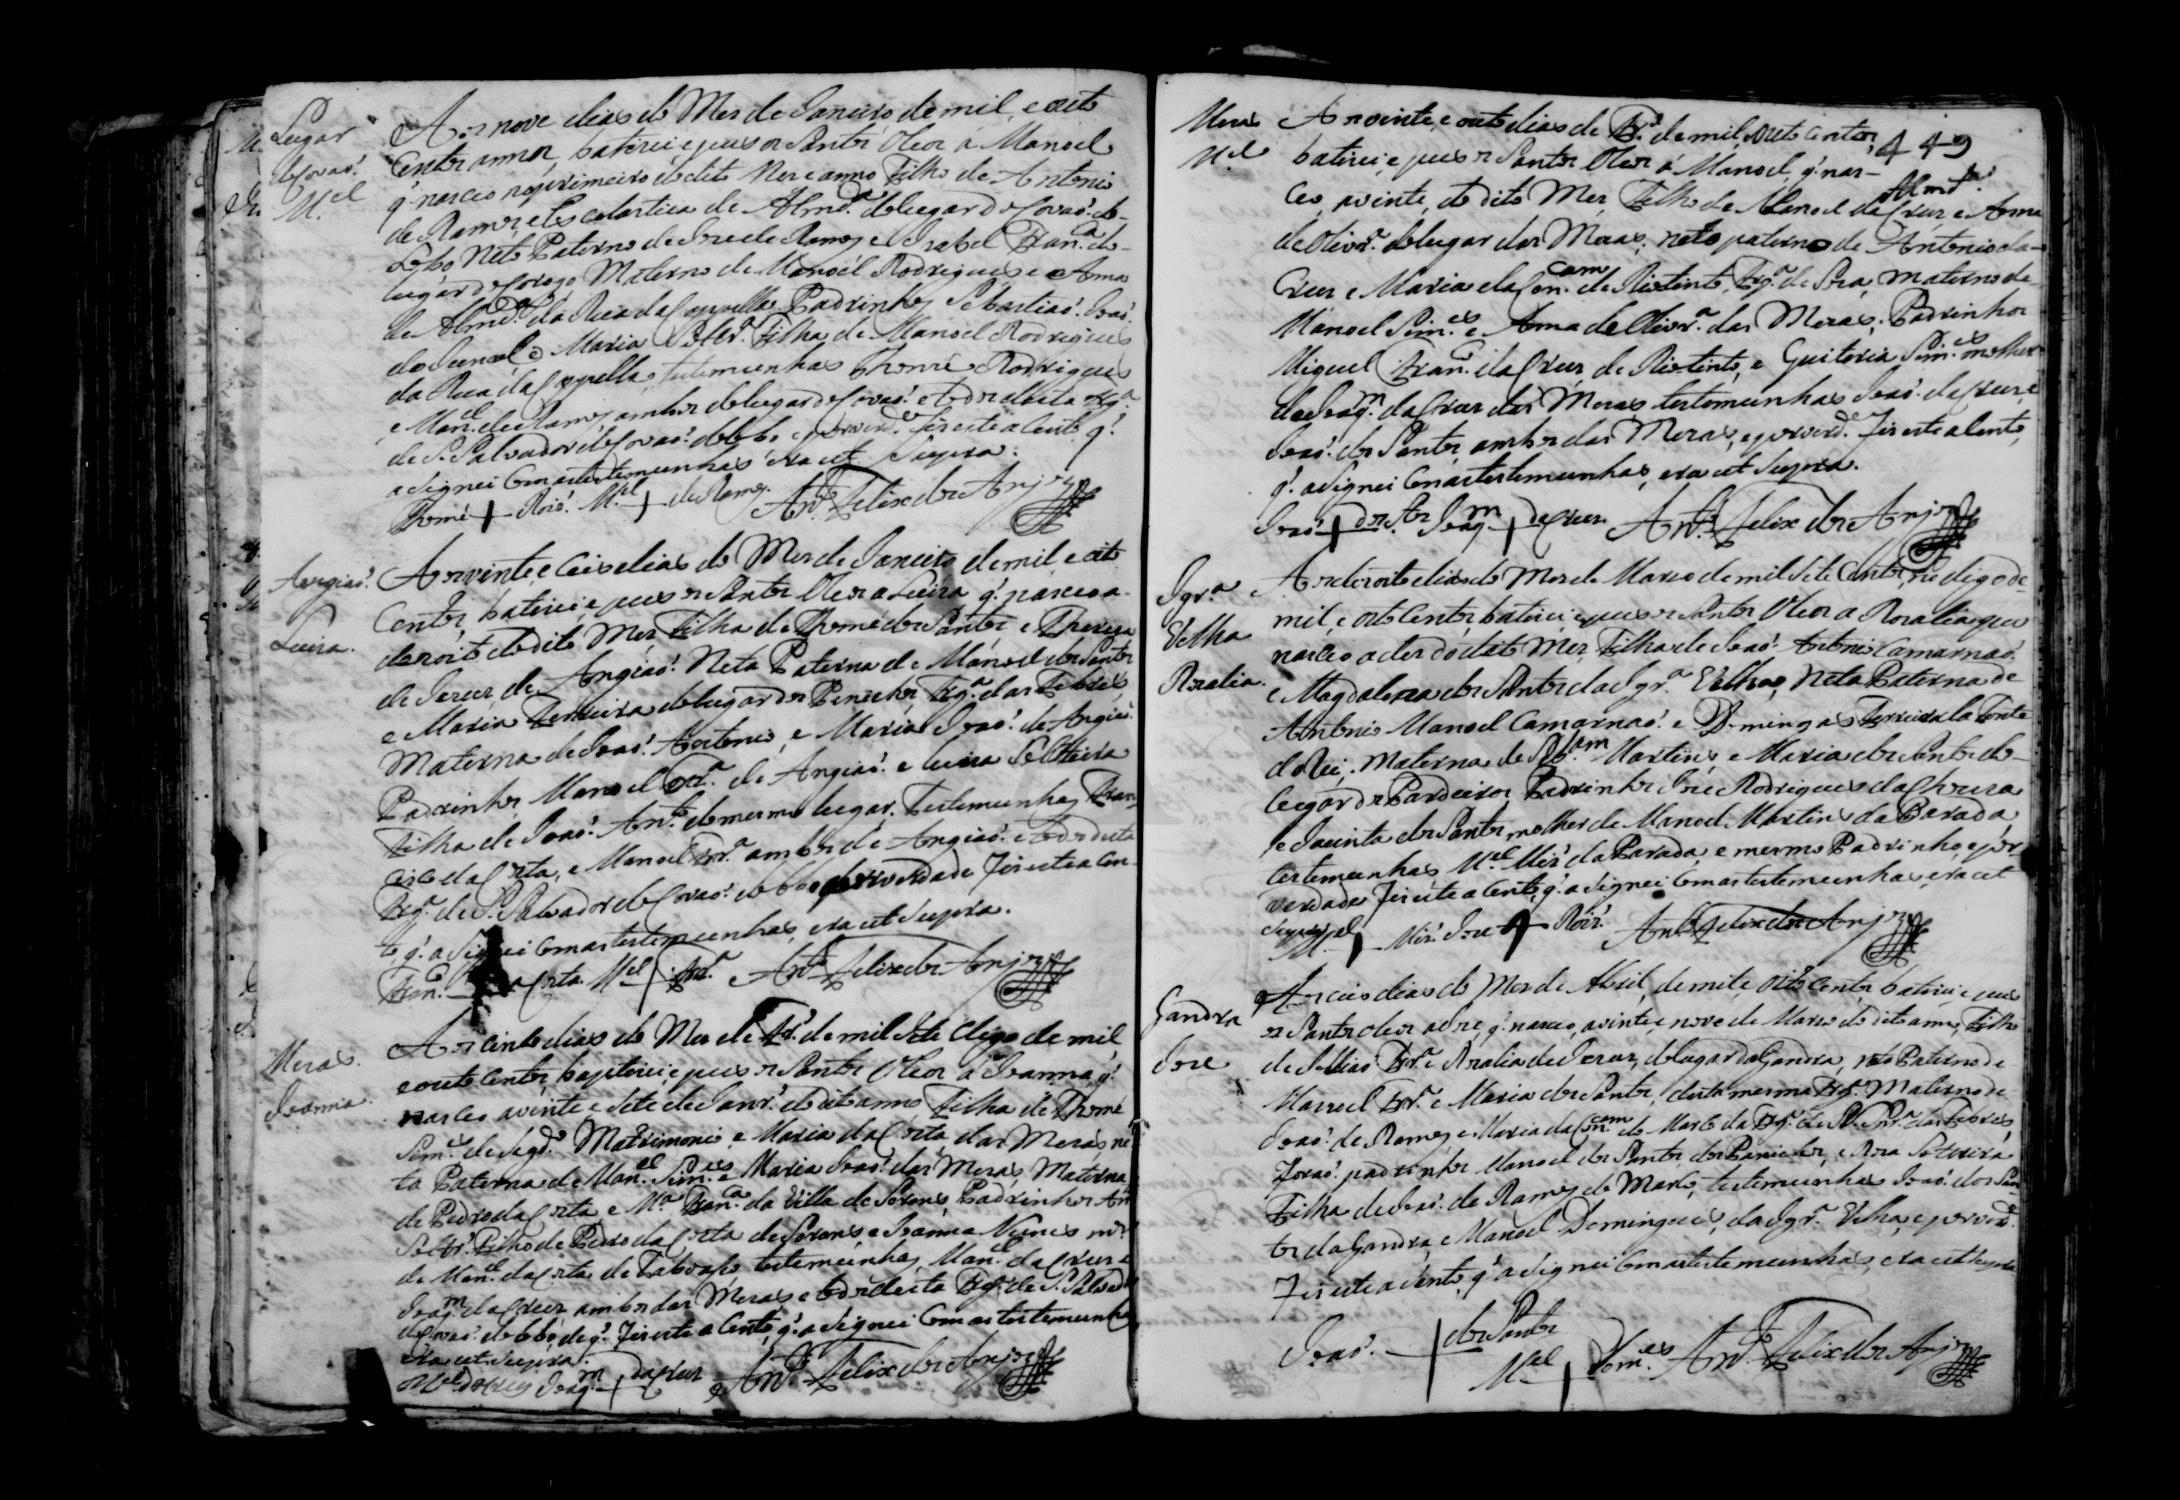 Lugar
de Covaõ.
M.el
Aos nove dias do Mes de Janeiro de mil, e outo
Centos annos, baterei e pus os Santos Oleos a Manoel
q. nasceo no primeiro do dito Mes e anno Filho de Antonio
de Ramos, e Escolastica de Alm.da do lugar de Covaõ. do
Lobo Neto Paterno de Jose de Ramos e Izabel Fran.ca do
lugar de Corogo Materno de Manoel Rodrigues e Anna
de Alm.da da Rua da Cappella Padrinhos Sebastiaõ. Joaõ.
do e Maria Soltr.a Filha de Manoel Rodrigues
da Rua da Cappella, testemunhas Thomé Rodrigues
e Man.el de Ramos ambos do lugar de Covaõ. e todos desta Frg.a
de S. Salvador de Covaõ. do Lobo e por verd.e fis este acento q.
asignei com as testemunhas era ut Supra.
Thomé + Roiz. M.el + de Ramos. Ant.o Felix dos Anjos
Angiaõ.
Luiza.
Aos vinte e Ceis dias do Mes de Janeiro de mil e oito
Centos baterei e pus os Santos Oleos a Luiza q. nasceo a
dezoito do dito Mes Filha de Thomé dos Santos e Thereza
de Jezus de Angiaõ. Neta Paterna de Manoel dos Santos
e Maria Ferreira do lugar dos Penechos, Frg.a das Febres
Materna de Joaõ. Antonio, e Maria Joaõ. de Angiaõ.
Padrinhos Manoel de Angiaõ. e Luiza Solteira
Filha de Joaõ. Ant.o do mesmo lugar. Testemunhas Fran-
cisco da Costa, e Manoel ambos de Angiaõ. e todos desta
Frg.a de S. Salvador de Covaõ. do Lobo por verdade fis este acen-
to, q. asignei com as testemunhas, era ut Supra.
Fran.co + a Costa. M.el + Ant.o Felix dos Anjos
Meras.
Joanna.
Aos cinco dias do Mes de Fr.o de mil Sete Digo de mil
e outo Centos, baptizei, e pus os Santos Oleos a Joanna, q.
nasceo a vinte e Sete de Janr.o do dito anno, Filha de Thomé
Sim.es de Segd.o Matrimonio e Maria da Costa das Meras, ne
ta Paterna de Man.el Sim.es e Maria Joaõ. das Meras, Materna
de Pedro da Costa e M.a Fran.ca da Villa de Sorens, Padrinhos Ant.
Soltr.o Filho de Pedro da Costa de Sorens e Joanna Nunes m.er
de Man.el da Costa de Taboaço testemunhas, Man.el da Crus e
Joaq.m da Crus ambos das Meras e todos desta Frg.a de S. Salvador
de Covaõ. do Lobo, de q. fis este acento, q. asignei Com as testemunhas
era ut supra.
M.el da Crus Joaq.m + da Crus Ant.o Felix dos Anjos
449
Meras
M.el
Aos vinte, e outo dias de Fr.o de mil, outo Centos,
baterei, e pus os Santos Oleos a Manoel, q. nas-
ceo, a vinte, do dito Mes, Filho de Manoel da Crus e Anna
Alm.da
de Olivr.a do lugar das Meras, neto paterno de Antonio da
Crus e Maria da Con.cam de Riotinto, Frg.a de Soza, Materno de
Manoel Sim.es e Anna de Olivr.a das Meras; Padrinhos
Miguel Fran.co da Crus de Riotinto, e Guiteria Sim.es molher
de Joaq.m da Crus das Meras testemunhas Joaõ. da Crus, e
Joaõ. dos Santos, ambos das Meras, e por verd.e fis este acento,
q. asignei Com as testemunhas, era ut Supra.
Joaõ + dos Stos. Joaq.m + da Crus. Ant.o Felix dos Anjos
Igr.a
Velha
Rozalia.
Aos dezoito dias do Mes de Marco de mil Sete Centos no digo de
mil, e oito Centos, baterei e pus os Santos Oleos a Rozalia que
nasceo a des do dito Mes, Filha de Joaõ. Antonio Camarnaõ.
e Magdalena dos Santos da Igr.a Velha, Neta Paterna de
Antonio Manoel Camarnaõ. e Domingas Ferreira da Fonte
do Rei, Materna de Martins e Maria dos Santos do
lugar dos Pardeiros, Padrinhos Jose Rodrigues da Choiza
e Jacinta dos Santos, molher de Manoel Martins da Parada
testemunhas M.el Miz. da Parada, e mesmo Padrinho, e por
verdade fis este acento, q. asignei Com as testemunhas, era ut
supra M.el + Miz. Jose + Roiz. Ant.o Felix dos Anjos
Gandra
Jose
Aos ceis dias do Mes de Abril, de mil e oito Centos, baterei e pus
os Santos oleos a Jose, q. nasceo, a vinte e nove de Marco do dito anno, Filho
de e Rozalia de Jezus, do lugar da Gandra, neto Paterno de
Manoel e Maria dos Santos, desta mesma Frg.a Materno de
Joaõ. de Ramos e Maria da Con.cam do da Frg.a das Febres
Foraõ. padrinhos Manoel dos Santos dos Penechos, e Roza Solteira
Filha de Joaõ. de Ramos de testemunhas Joaõ. dos San-
tos da Gandra, e Manoel Domingues, da Igr.a Velha, e por verd.e
fis este acento, q. asignei Com as testemunhas, era ut supra
Joaõ. + dos Santos
M.el + Dom.es Ant.o Felix dos Anjos